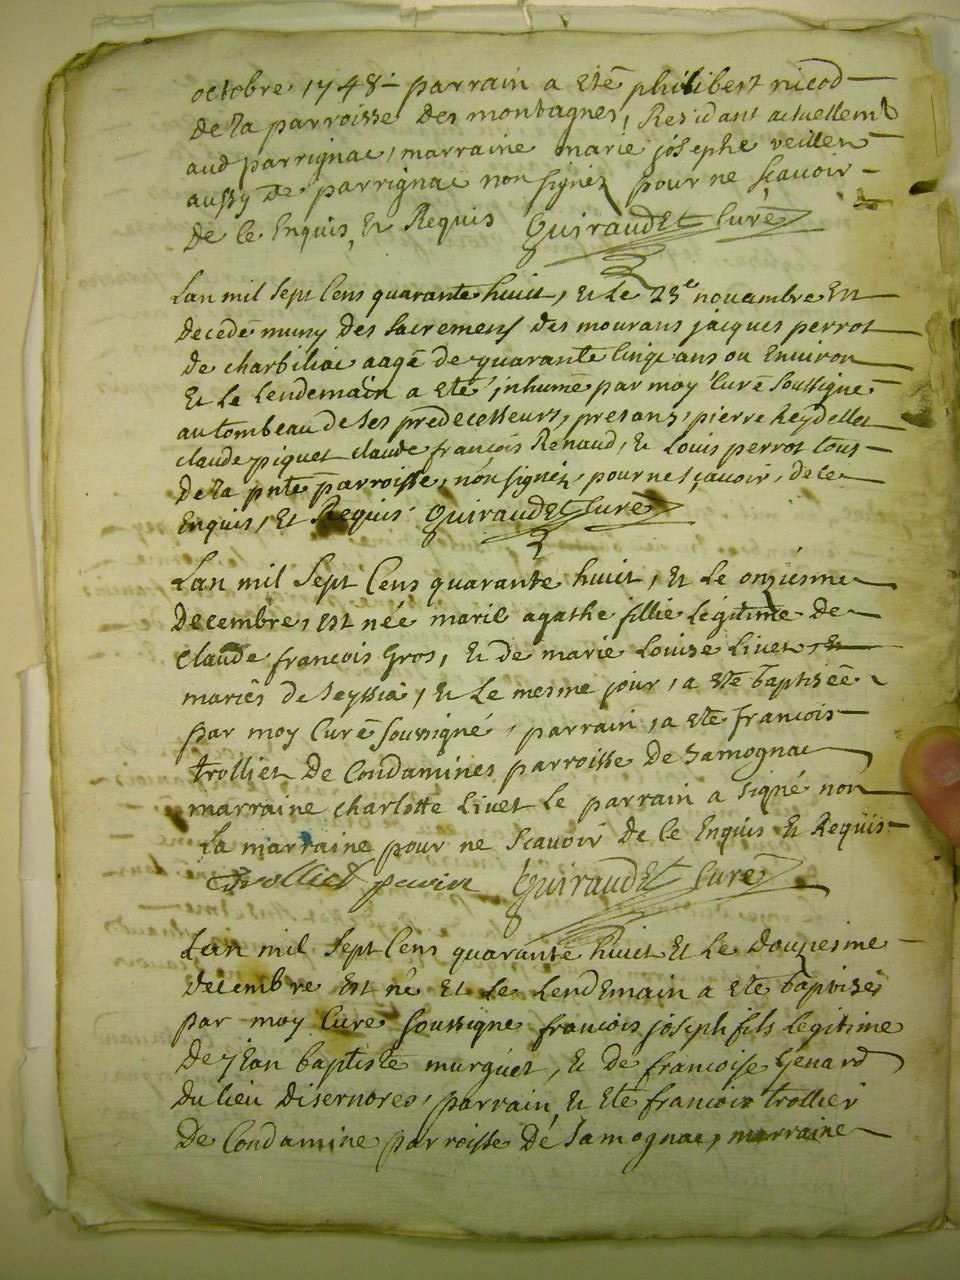 octobre 1748 parrain a eté philibert nicod
de la parroisse des montagnes, Residant actuellemt
aud parrignac, marraine marie josephe veillen
aussy de parrignac non signez pour ne scavoir
de ce Enquis, Et Requis Guiraudet Curé
Lan mil sept Cens quarante huit, et Le 23e novambre Est
decedé muny des sacremens des mourans jacques perrot
de charbiliac aagé de quarante Cinq ans ou Environ
Et Le Lendemain a eté inhumé par moy Curé soussigné
au tombeau de ses predecesseurs, presans, pierre Reydellet
claude piquet claude françois Renaud, Et Louis perrot tous
de la pnte parroisse, non signez pour ne sçavoir, de ce
Enquis, Et Requis Guiraudet Curé
Lan mil sept Cens quarante huit, Et Le onziesme
Decembre, est née marie agathe fillie Legitime de
Claude francois Gros, Et de marie Louise Livet
mariés de Seyssia, Et Le mesme jour, a eté baptisée
par moy Curé soussigné, parrain, a eté francois
trolliet De Condamines parroisse de Samognac
marraine charlotte Livet Le parrain a signé non
La marraine pour ne Scavoir de ce Enquis Et Requis
Trolliet parrin Guiraudet Curé
Lan mil sept Cens quarante huit Et Le douziesme
decembre Est né Et Le Lendemain a eté baptisés
par moy Cure soussigne francois joseph fils Legitime
de jean baptiste murguet, Et de francoise Genard
du lieu disernores, parrain Et eté francois trollier
De Condamine parroisse de Samognac, marraine